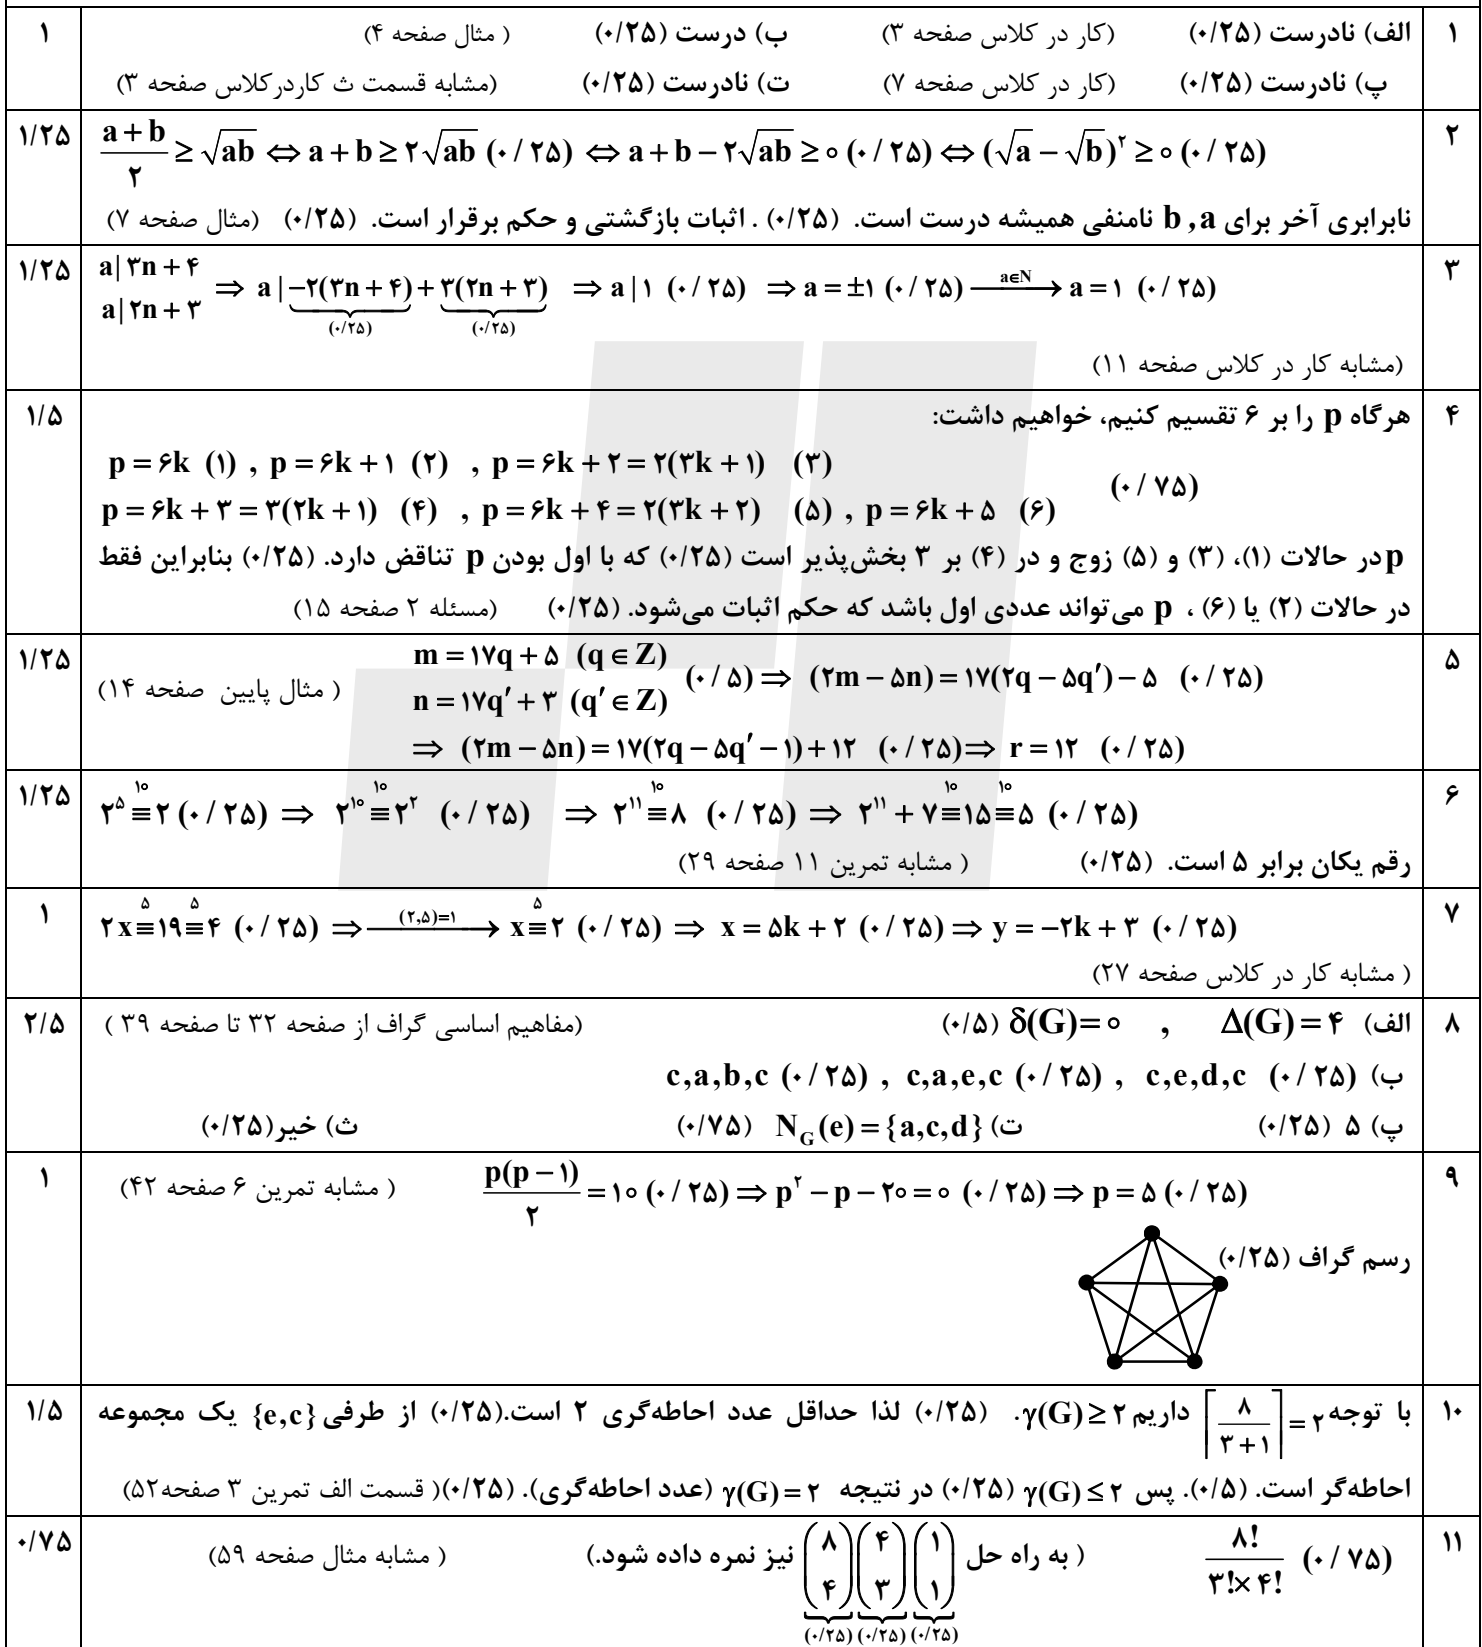 ۱ الف) نادرست (۰/۲۵) (کار در کلاس صفحه ۳) ب) درست (۰/۲۵) ( مثال صفحه ۴) ۱
پ) نادرست (۰/۲۵) (کار در کلاس صفحه ۷) ت) نادرست (۰/۲۵) (مشابه قسمت ث کاردرکلاس صفحه ۳)
۲ (a+b)/۲ ≥ √ab ⇔ a+b ≥ ۲√ab (۰/۲۵) ⇔ a+b−۲√ab ≥ ۰ (۰/۲۵) ⇔ (√a − √b)^۲ ≥ ۰ (۰/۲۵) ۱/۲۵
نابرابری آخر برای b , a نامنفی همیشه درست است. (۰/۲۵) . اثبات بازگشتی و حکم برقرار است. (۰/۲۵) (مثال صفحه ۷)
۳ a|۳n+۴ ۱/۲۵
a|۲n+۳ ⇒ a|−۲(۳n+۴)+۳(۲n+۳) ⇒ a|۱ (۰/۲۵) ⇒ a=±۱ (۰/۲۵) —a∈N→ a=۱ (۰/۲۵)
(۰/۲۵) (۰/۲۵)
(مشابه کار در کلاس صفحه ۱۱)
۴ هرگاه p را بر ۶ تقسیم کنیم، خواهیم داشت: ۱/۵
p=۶k (۱) , p=۶k+۱ (۲) , p=۶k+۲=۲(۳k+۱) (۳)
(۰/۷۵)
p=۶k+۳=۳(۲k+۱) (۴) , p=۶k+۴=۲(۳k+۲) (۵) , p=۶k+۵ (۶)
p در حالات (۱)، (۳) و (۵) زوج و در (۴) بر ۳ بخش‌پذیر است (۰/۲۵) که با اول بودن p تناقض دارد. (۰/۲۵) بنابراین فقط
در حالات (۲) یا (۶) ، p می‌تواند عددی اول باشد که حکم اثبات می‌شود. (۰/۲۵) (مسئله ۲ صفحه ۱۵)
۵ m=۱۷q+۵ (q∈Z) ۱/۲۵
n=۱۷q′+۳ (q′∈Z) (۰/۵) ⇒ (۲m−۵n)=۱۷(۲q−۵q′)−۵ (۰/۲۵) ( مثال پایین صفحه ۱۴)
⇒ (۲m−۵n)=۱۷(۲q−۵q′−۱)+۱۲ (۰/۲۵) ⇒ r=۱۲ (۰/۲۵)
۶ ۲^۵ ≡^۱۰ ۲ (۰/۲۵) ⇒ ۲^۱۰ ≡^۱۰ ۲^۲ (۰/۲۵) ⇒ ۲^۱۱ ≡^۱۰ ۸ (۰/۲۵) ⇒ ۲^۱۱+۷ ≡^۱۰ ۱۵ ≡^۱۰ ۵ (۰/۲۵) ۱/۲۵
رقم یکان برابر ۵ است. (۰/۲۵) ( مشابه تمرین ۱۱ صفحه ۲۹)
۷ ۲x ≡^۵ ۱۹ ≡^۵ ۴ (۰/۲۵) ⇒ —(۲,۵)=۱→ x ≡^۵ ۲ (۰/۲۵) ⇒ x=۵k+۲ (۰/۲۵) ⇒ y=−۲k+۳ (۰/۲۵) ۱
( مشابه کار در کلاس صفحه ۲۷)
۸ الف) Δ(G)=۴ , δ(G)=۰ (۰/۵) (مفاهیم اساسی گراف از صفحه ۳۲ تا صفحه ۳۹ ) ۲/۵
ب) c,a,b,c (۰/۲۵) , c,a,e,c (۰/۲۵) , c,e,d,c (۰/۲۵)
پ) ۵ (۰/۲۵) ت) N_G(e)={a,c,d} (۰/۷۵) ث) خیر(۰/۲۵)
۹ p(p−۱)/۲=۱۰ (۰/۲۵) ⇒ p^۲−p−۲۰=۰ (۰/۲۵) ⇒ p=۵ (۰/۲۵) ( مشابه تمرین ۶ صفحه ۴۲) ۱
رسم گراف (۰/۲۵)
۱۰ با توجه ⌈۸/(۳+۱)⌉=۲ داریم γ(G)≥۲. (۰/۲۵) لذا حداقل عدد احاطه‌گری ۲ است.(۰/۲۵) از طرفی {e,c} یک مجموعه ۱/۵
احاطه‌گر است. (۰/۵). پس γ(G)≤۲ (۰/۲۵) در نتیجه γ(G)=۲ (عدد احاطه‌گری). (۰/۲۵)( قسمت الف تمرین ۳ صفحه۵۲)
۱۱ ۸!/(۳!×۴!) (۰/۷۵) ( به راه حل (۸ ۴)(۴ ۳)(۱ ۱) نیز نمره داده شود.) ( مشابه مثال صفحه ۵۹) ۰/۷۵
(۰/۲۵) (۰/۲۵) (۰/۲۵)